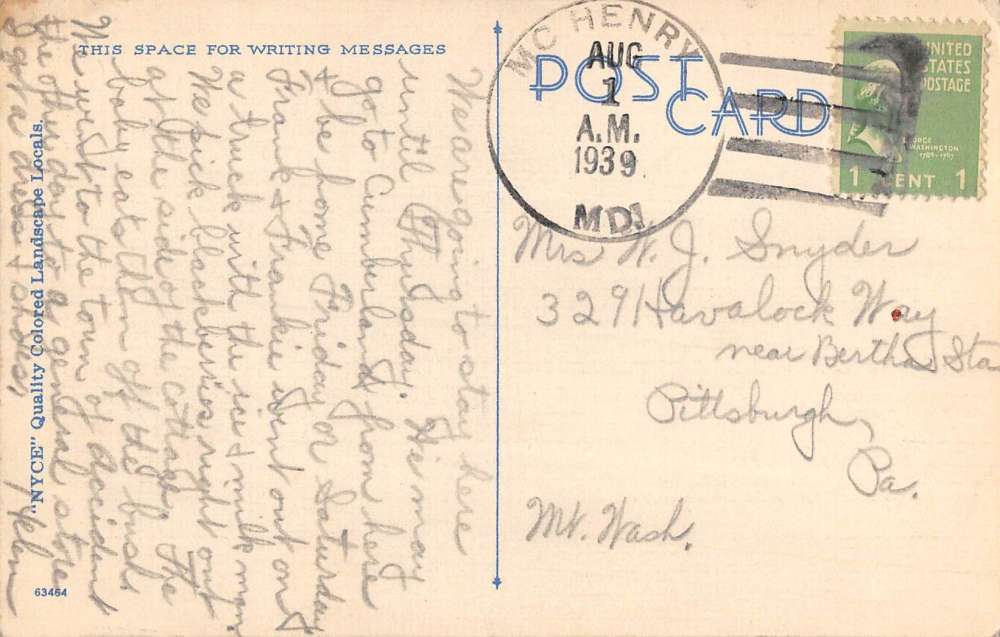 THIS SPACE FOR WRITING MESSAGES
POST CARD
MC HENRY
AUG
1
A.M.
1939
MD.
UNITED
STATES
POSTAGE
GEORGE
WASHINGTON
1789-1797
1 CENT 1
Mrs W. J. Snyder
329 Havalock Way
near Bertha Sta
Pittsburgh,
Pa.
Mt. Wash.
We are going to stay here
until Thursday. We may
go to Cumberland from here
& be home Friday or Saturday
Frank & Frankie went out on
a truck with the ice & milk man
We pick blackberries right out
at the side of the cottage. The
baby eats them off the bush
We went to the town of Accident
the other day to a general store
I got a dress & shoes,
"NYCE" Quality Colored Landscape Locals.
63464